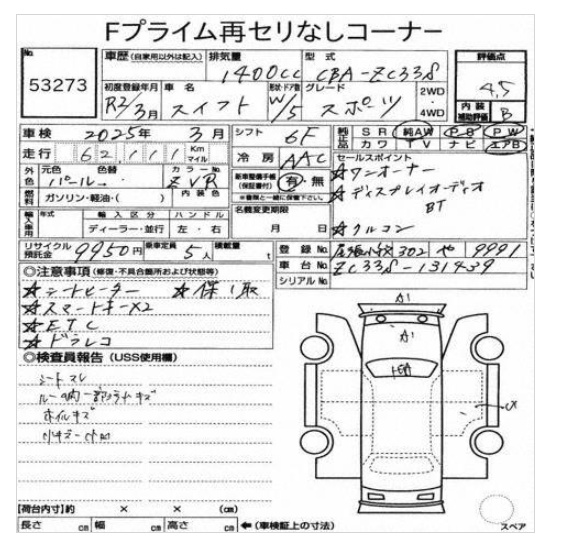 Fプライム再セリなしコーナー
No. 53273
車歴(自家用以外は記入) 排気量 1400cc 型式 CBA-ZC33S 評価点 4.5
初度登録年月 R2/3月 車名 スイフト 形状・ドア数 W/5 グレード スポーツ 2WD 4WD 内装補助評価 B
車検 2025年 3月 シフト 6F 純正品 SR 純AW PS PW
カワ TV ナビ エアB
走行 62,111 Km マイル 冷房 AAC セールスポイント
外色 元色 パール 色替 カラーNo. ZVR 内装色 新車整備手帳(保証書付) 有・無 ☆ワンオーナー
※書類と一緒に保管下さい。 ☆ディスプレイオーディオ
BT
燃料 ガソリン・軽油・( ) 名義変更期限 月 日 ☆クルコン
輸入車用 年式 輸入区分 ディーラー・並行 ハンドル 左・右
リサイクル預託金 9950円 乗車定員 5人 積載量 t 登録No. 尾張小牧 302 や 9991
車台No. ZC33S-131439
シリアルNo.
◎注意事項(修復・不具合箇所および状態等)
☆シートヒーター ☆保 取
☆スマートキーX2
☆ETC
☆ドラレコ
◎検査員報告(USS使用欄)
シートスレ
ルーフ内一部
ホイルキズ
小キズ
A1
【荷台内寸】約 × × (cm)
長さ cm 幅 cm 高さ cm ←(車検証上の寸法)
スペア